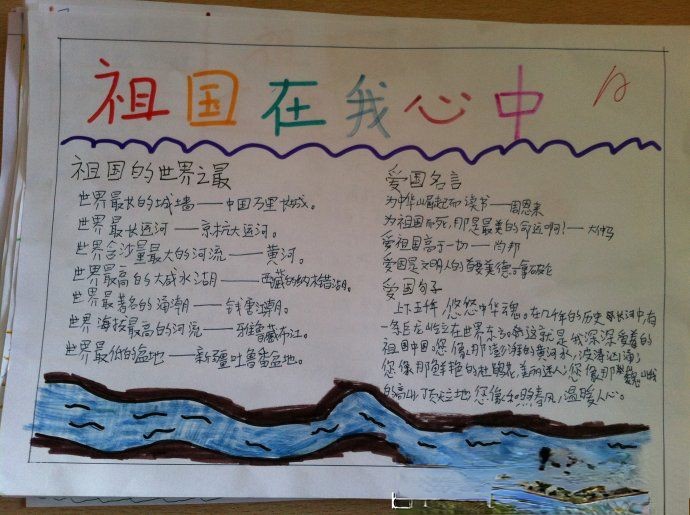 祖国在我心中
A
祖国的世界之最
世界最长的城墙——中国万里长城。
世界最长运河——京杭大运河。
世界含沙量最大的河流——黄河。
世界最高的大咸水湖——西藏的纳木错湖。
世界最著名的涌潮——钱塘江潮。
世界海拔最高的河流——雅鲁藏布江。
世界最低的盆地——新疆吐鲁番盆地。
爱国名言
为中华崛起而读书——周恩来
为祖国而死，那是最美的命运啊！——大仲马
爱祖国高于一切——肖邦
爱国是文明人的首要美德——拿破仑
爱国句子
上下五千年，悠悠中华魂。在几千年的历史长河中，有
一条巨龙屹立在世界东方，这就是我深深爱着的
祖国中国。您像那澎湃的黄河水，波涛汹涌；
您像那鲜艳的杜鹃花，美丽迷人；您像那巍峨
的高山，顶立地 您像和煦春风，温暖人心。